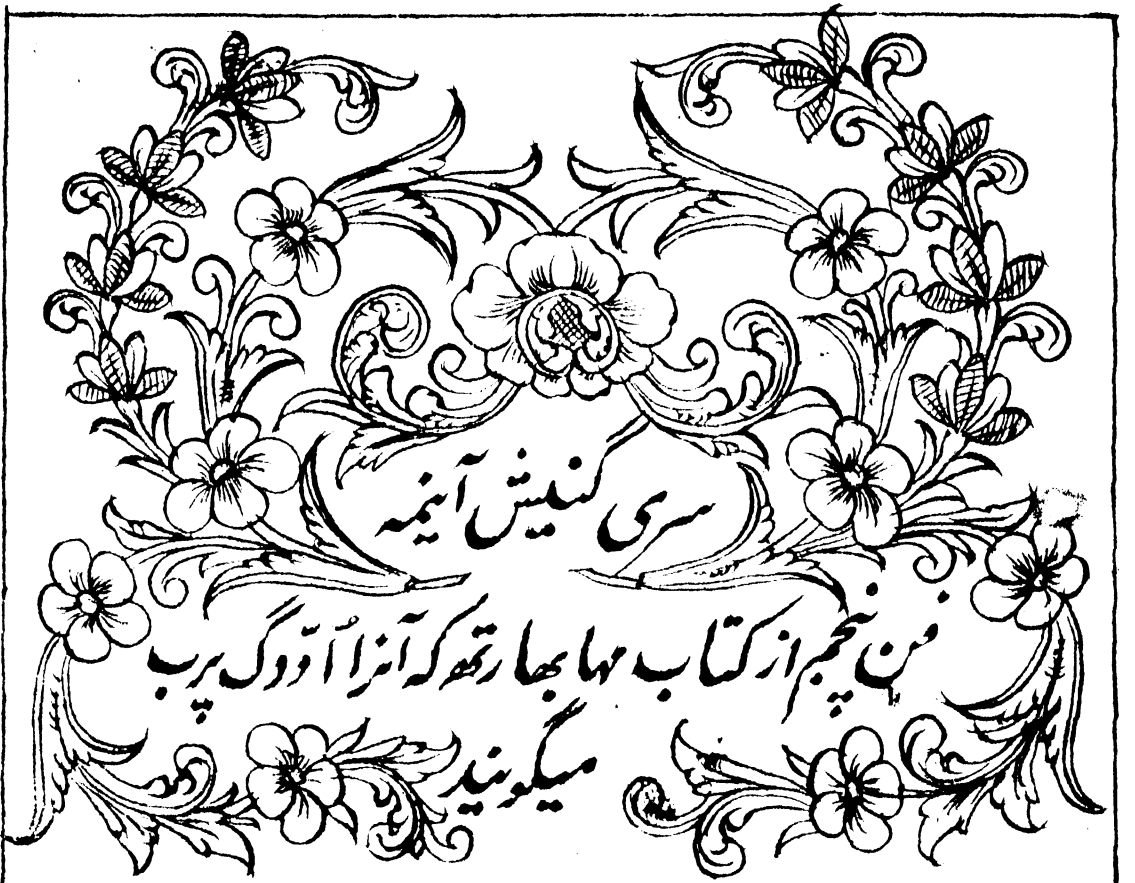 سری گنیش آینمه
فن پنجم از کتاب مهابهارتھ که آنرا اُدّوگ پرب
میگویند